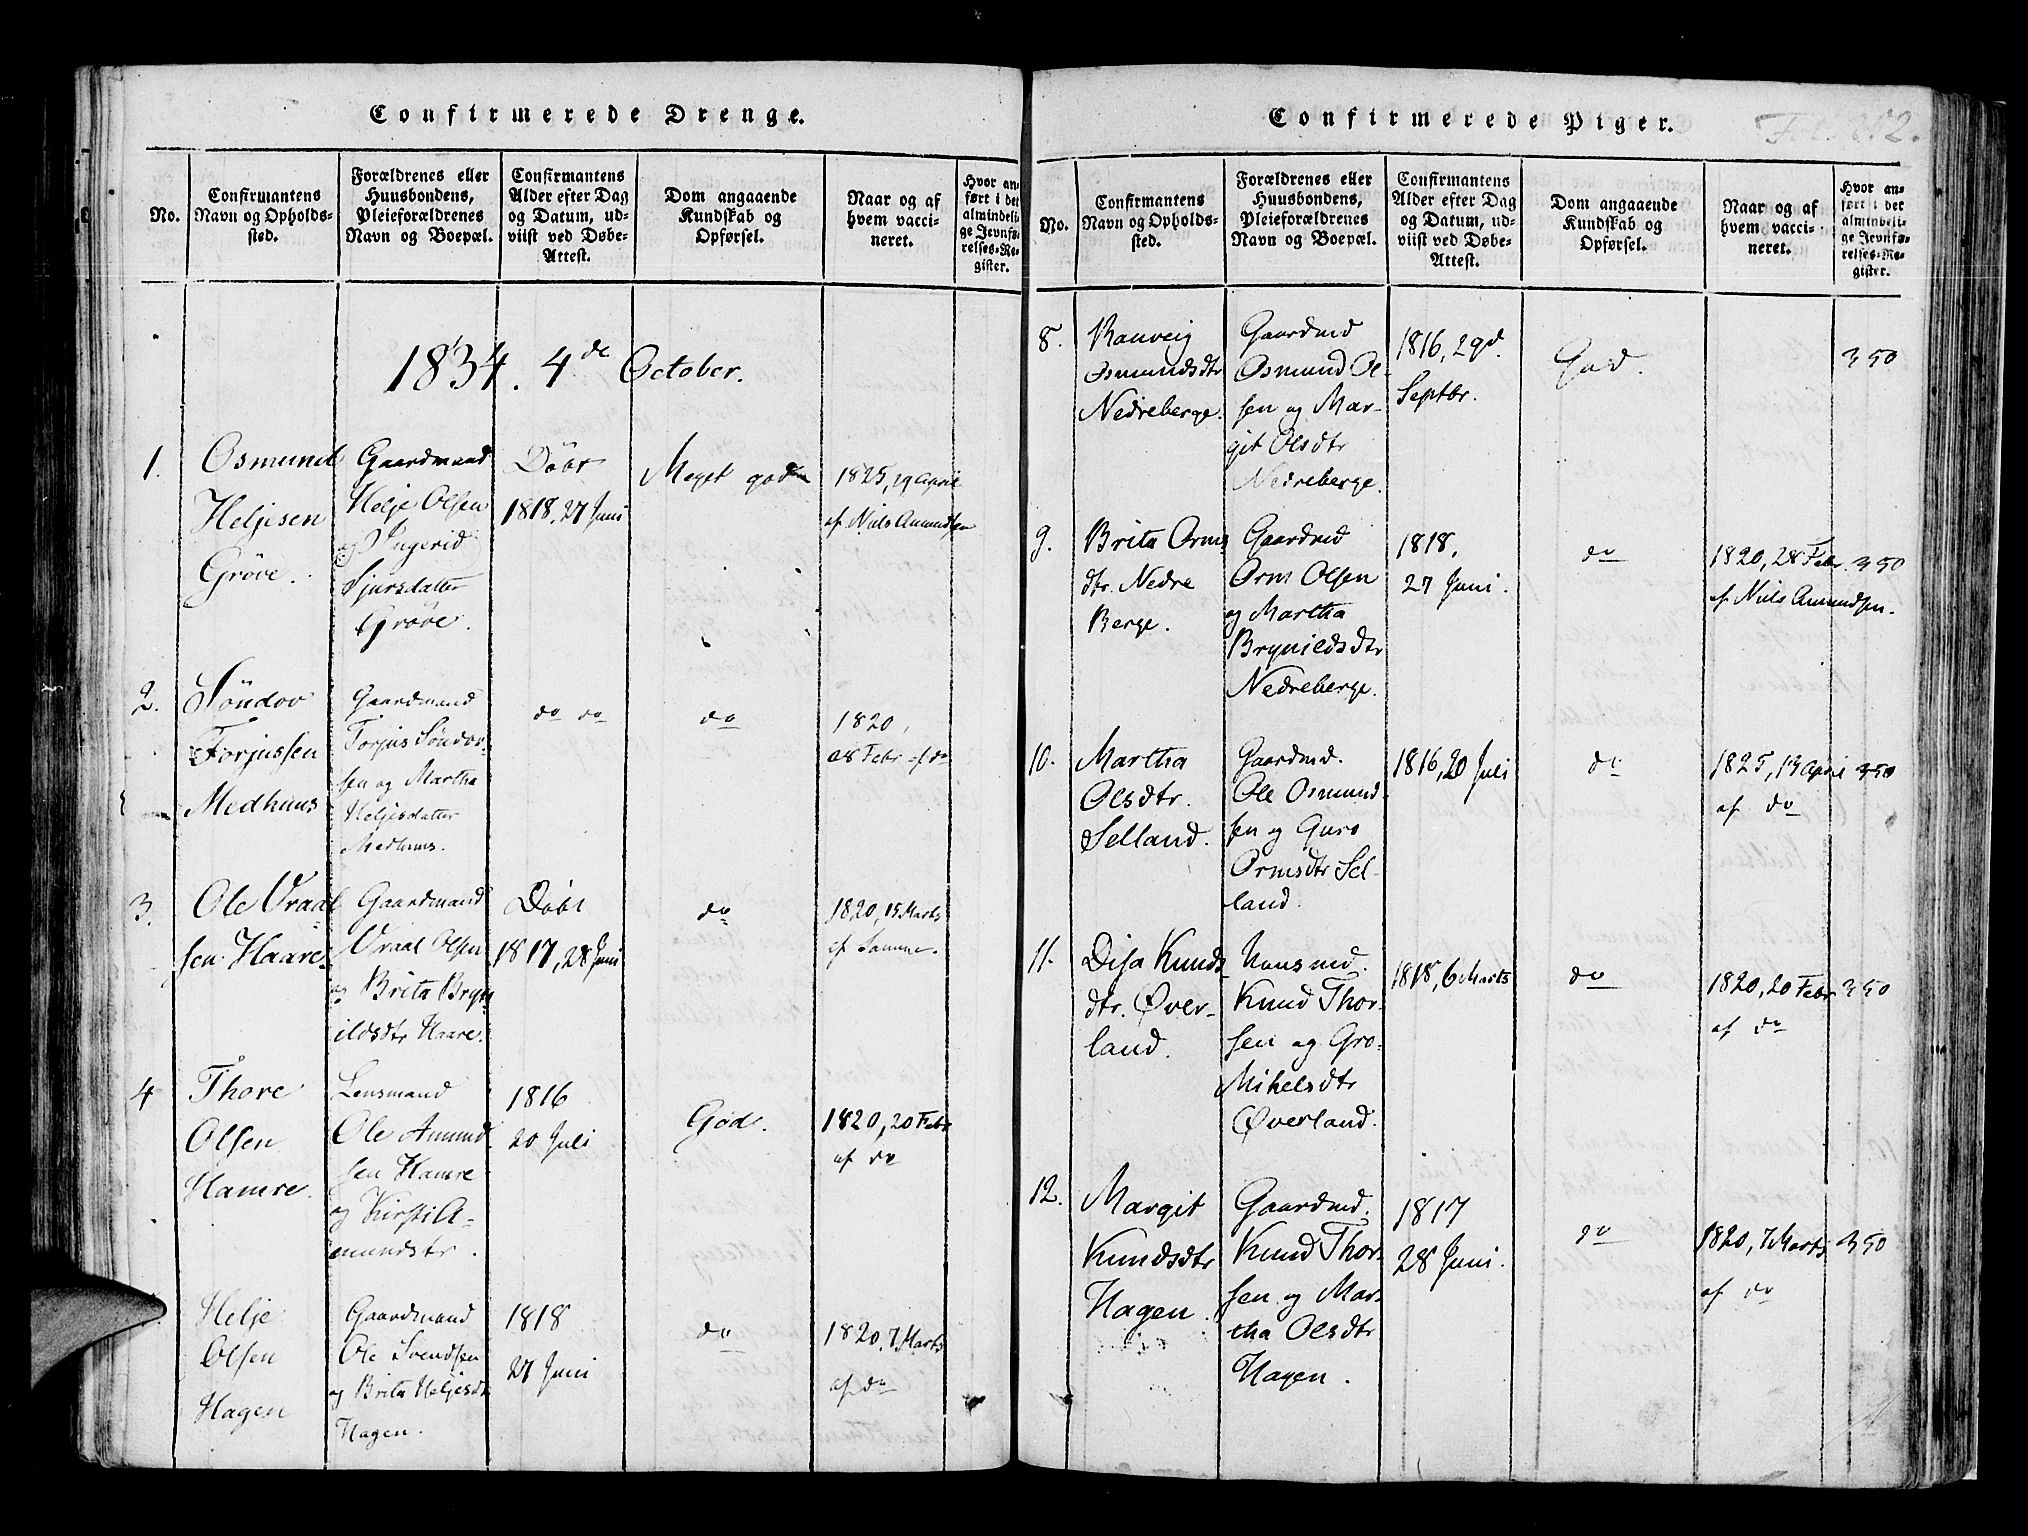 Confirmerede Drenge.
No.
Confirmantens
Navn og Opholds-
sted.
Forældrenes eller
Huusbondens,
Pleieforældrenes
Navn og Boepæl.
Confirmantens
Alder efter Dag
og Datum, ud-
viist ved Døbe-
Attest.
Dom angaaende
Kundskab og
Opførsel.
Naar og af
hvem vacci-
neret.
Hvor an-
ført i det
almindeli-
ge Jevnfø-
relses-Re-
gister.
1834. 4de October.
1.
Osmund
Heljesen
Grøve.
Gaardmand
Helje Olsen
og Ingerid
Sjursdatter
Grøve.
Døbt
1818, 27 Juni
Meget god
1825, 19 April
af Niels Amundsen
2.
Söndov
Torjussen
Medhuus
Gaardmand
Torjus Söndov-
sen og Martha
Heljesdatter
Medhuus.
do do
do
1820,
28 Febr af do
3.
Ole Vraal
sen Haare
Gaardmand
Vraal Olsen
og Brita Bryn
ildsdtr Haare.
Døbt
1817, 28 Juni
do
1820, 15 Marts
af Samme.
4
Thore
Olsen
Hamre.
Lensmand
Ole Amund
sen Hamre
og Kirsti A-
mundsdtr.
1816
20 Juli
God.
1820, 20 Febr
af do
Helje
Olsen
Hagen
Gaardmand
Ole Svendsen
og Brita Heljesdtr
Hagen.
1818
27 Juni
do
1820, 7 Marts
af do
Confirmerede Piger.
No.
Confirmantens
Navn og Opholds-
sted.
Forældrenes eller
Huusbondens,
Pleieforældrenes
Navn og Boepæl.
Confirmantens
Alder efter Dag
og Datum, ud-
viist ved Døbe-
Attest.
Dom angaaende
Kundskab og
Opførsel.
Naar og af
hvem vacci-
neret.
Hvor an-
ført i det
almindeli-
ge Jevnfø-
relses-Re-
gister.
8.
Ranveig
Osmundsdtr
Nedreberge.
Gaardmd
Osmund Ol-
sen og Mar-
git Olsdtr
Nedreberge.
1816, 29d.
Septbr.
God.
350
9.
Brita Orms
dtr. Nedre
Berge.
Gaardmd
Orm Olsen
og Martha
Brynildsdtr
Nedreberge.
1818,
27 Juni.
do
1820, 28 Febr.
af Niels Amundsen.
350
10.
Martha
Olsdtr.
Selland.
Gaardmd.
Ole Osmund-
sen og Guro
Ormsdtr Sel-
land.
1816, 20 Juli
do
1825, 19 April
af do
350
11.
Disa Knuds
dtr. Øver-
land.
Huusmd.
Knud Thor-
sen og Gro-
Mikelsdtr
Øverland.
1818, 6 Marts
do
1820, 20 Febr
af do
350
12.
Margit
Knudsdtr
Hagen
Gaardmd.
Knud Thor-
sen og Mar-
tha Olsdtr
Hagen.
1817
28 Juni.
do
1820, 7 Marts
af do
350